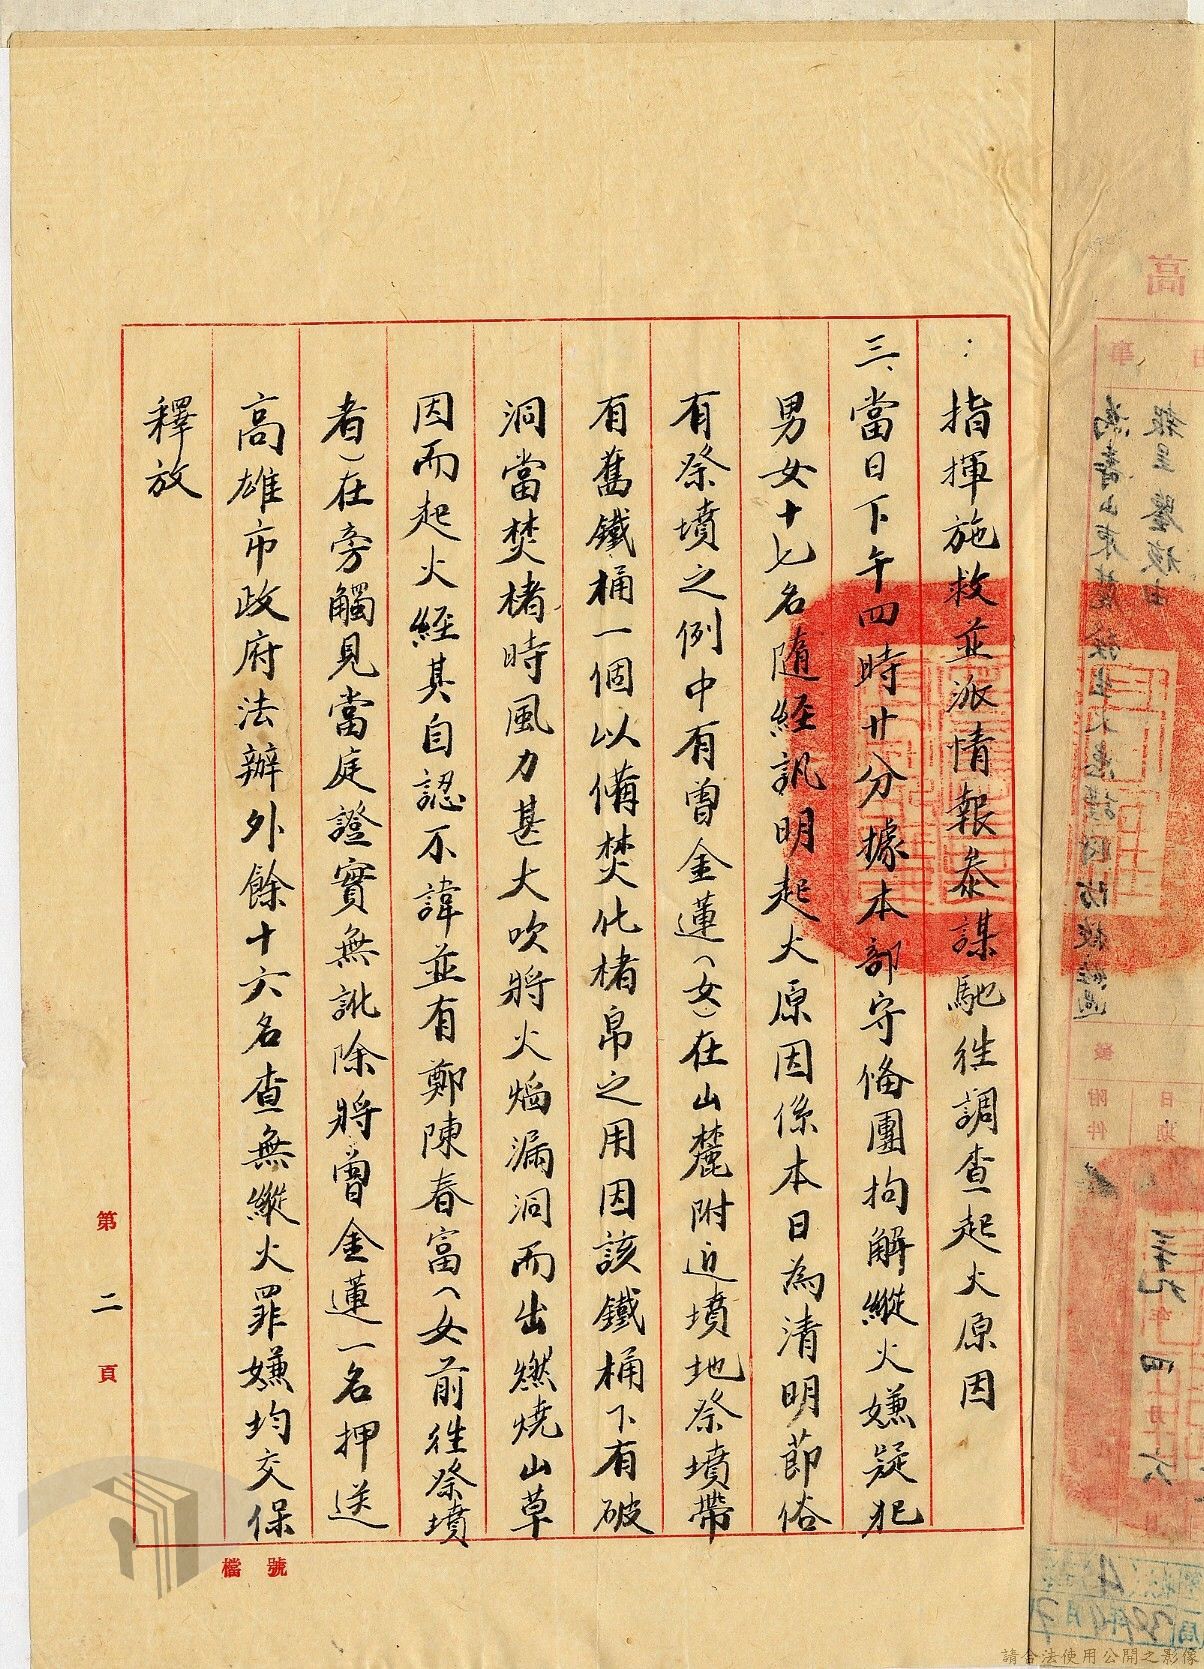 ：指揮施救並派情報參謀馳往調查起火原因
三、當日下午四時廿分據本部守俻團拘解縱火嫌疑犯
男女十七名隨經訊明起火原因係本日為清明節俗
有祭墳之例中有曾金蓮(女)在山麓附近墳地祭墳帶
有舊鐵桶一個以備焚化楮帛之用因該鐵桶下有破
洞當焚楮時風力甚大吹將火焰漏洞而出燃燒山草
因而起火經其自認不諱並有鄭陳春富(女前往祭墳
者)在旁觸見當庭證實無訛除將曾金蓮一名押送
高雄市政府法辦外餘十六名查無縱火罪嫌均交保
釋放
第二頁
檔號
請合法使用公開之影像